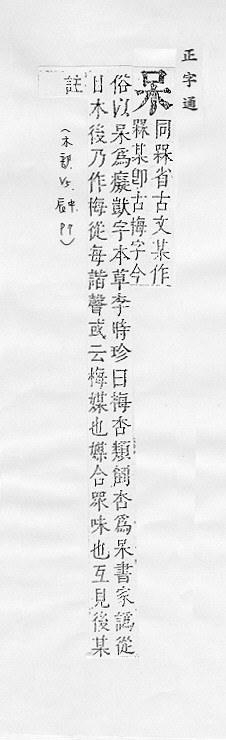 正字通
呆
同槑省古文某作
槑某卽古梅字今
俗以呆爲癡獃字本草李時珍曰梅杏類倒杏爲呆書家譌從
甘木後乃作梅從每諧聲或云梅媒也媒合眾味也互見後某
註
(木部. V5. 辰中. 99)